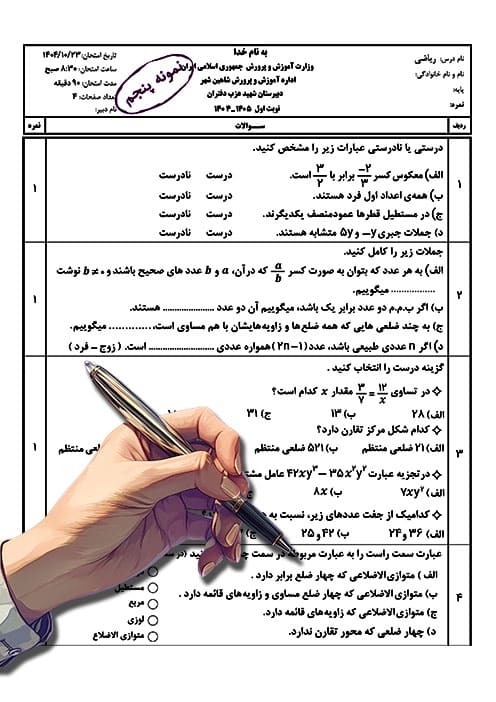 به نام خدا
نام درس: ریاضی
نام و نام خانوادگی:
پایه:
نمره:
وزارت آموزش و پرورش جمهوری اسلامی ایران
اداره آموزش و پرورش شاهین شهر
دبیرستان شهید عزب دفتران
نوبت اول ۱۴۰۵_۱۴۰۴
تاریخ امتحان: ۱۴۰۴/۱۰/۲۳
ساعت امتحان: ۸:۳۰ صبح
مدت امتحان: ۹۰ دقیقه
تعداد صفحات: ۴
نام دبیر:
نمونه پنجم
ردیف سـوالات نمره
۱ درستی یا نادرستی عبارات زیر را مشخص کنید. ۱
الف) معکوس کسر -۲/۳ برابر با ۳/۲ است. درست نادرست
ب) همه‌ی اعداد اول فرد هستند. درست نادرست
ج) در مستطیل قطرها عمودمنصف یکدیگرند. درست نادرست
د) جملات جبری -y و 5y متشابه هستند. درست نادرست
۲ جملات زیر را کامل کنید. ۱
الف) به هر عدد که بتوان به صورت کسر a/b که در آن، a و b عدد های صحیح باشند و b ≠ ۰ نوشت
................ میگوییم.
ب) اگر ب.م.م دو عدد برابر یک باشد، میگوییم آن دو عدد ..................... هستند.
ج) به چند ضلعی هایی که همه ضلع‌ها و زاویه‌هایشان با هم مساوی است، ............. میگوییم.
د) اگر n عددی طبیعی باشد، عدد (۲n-۱) همواره عددی ........................... است. (زوج - فرد)
۳ گزینه درست را انتخاب کنید. ۱
در تساوی ۳/۷ = ۱۲/x مقدار x کدام است؟
الف) ۲۸ ب) ۱۳ ج) ۳۱
کدام شکل مرکز تقارن دارد؟
الف) ۲۱ ضلعی منتظم ب) ۵۲۱ ضلعی منتظم ضلعی منتظم
در تجزیه عبارت ۴۲xy³ - ۳۵x²y² عامل
الف) ۷xy² ب) ۸x
کدامیک از جفت عددهای زیر، نسبت به
الف) ۳۶ و ۲۴ ب) ۴۲ و ۲۵
۴ عبارت سمت راست را به عبارت مربوطه در سمت
الف) متوازی الاضلاعی که چهار ضلع برابر دارد.
ب) متوازی الاضلاعی که چهار ضلع مساوی و زاویه‌های قائمه دارد. مستطیل
ج) متوازی الاضلاعی که زاویه‌های قائمه دارد. مربع
د) چهار ضلعی که محور تقارن ندارد. لوزی
متوازی الاضلاع